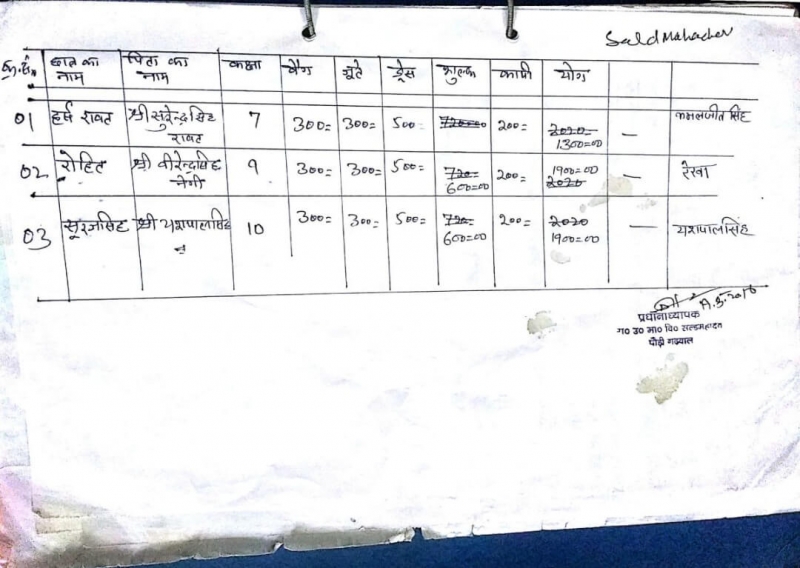 Sald Mahadev
क्र.सं. छात्र का नाम पिता का नाम कक्षा बैग जूते ड्रेस शुल्क कापी योग
01 हर्ष रावत श्री सुरेन्द्र सिंह रावत 7 300= 300= 500= 720=00 200= 2020= 1300=00 — कमलजीत सिंह
02 रोहित श्री वीरेन्द्र सिंह नेगी 9 300= 300= 500= 720= 600=00 200= 1900=00 2020 — रेखा
03 सूरज सिंह श्री यशपाल सिंह 10 300= 300= 500= 720= 600=00 200= 2020 1900=00 — यशपाल सिंह
प्रधानाध्यापक
रा० उ० मा० वि० सल्डमहादेव
पौड़ी गढ़वाल